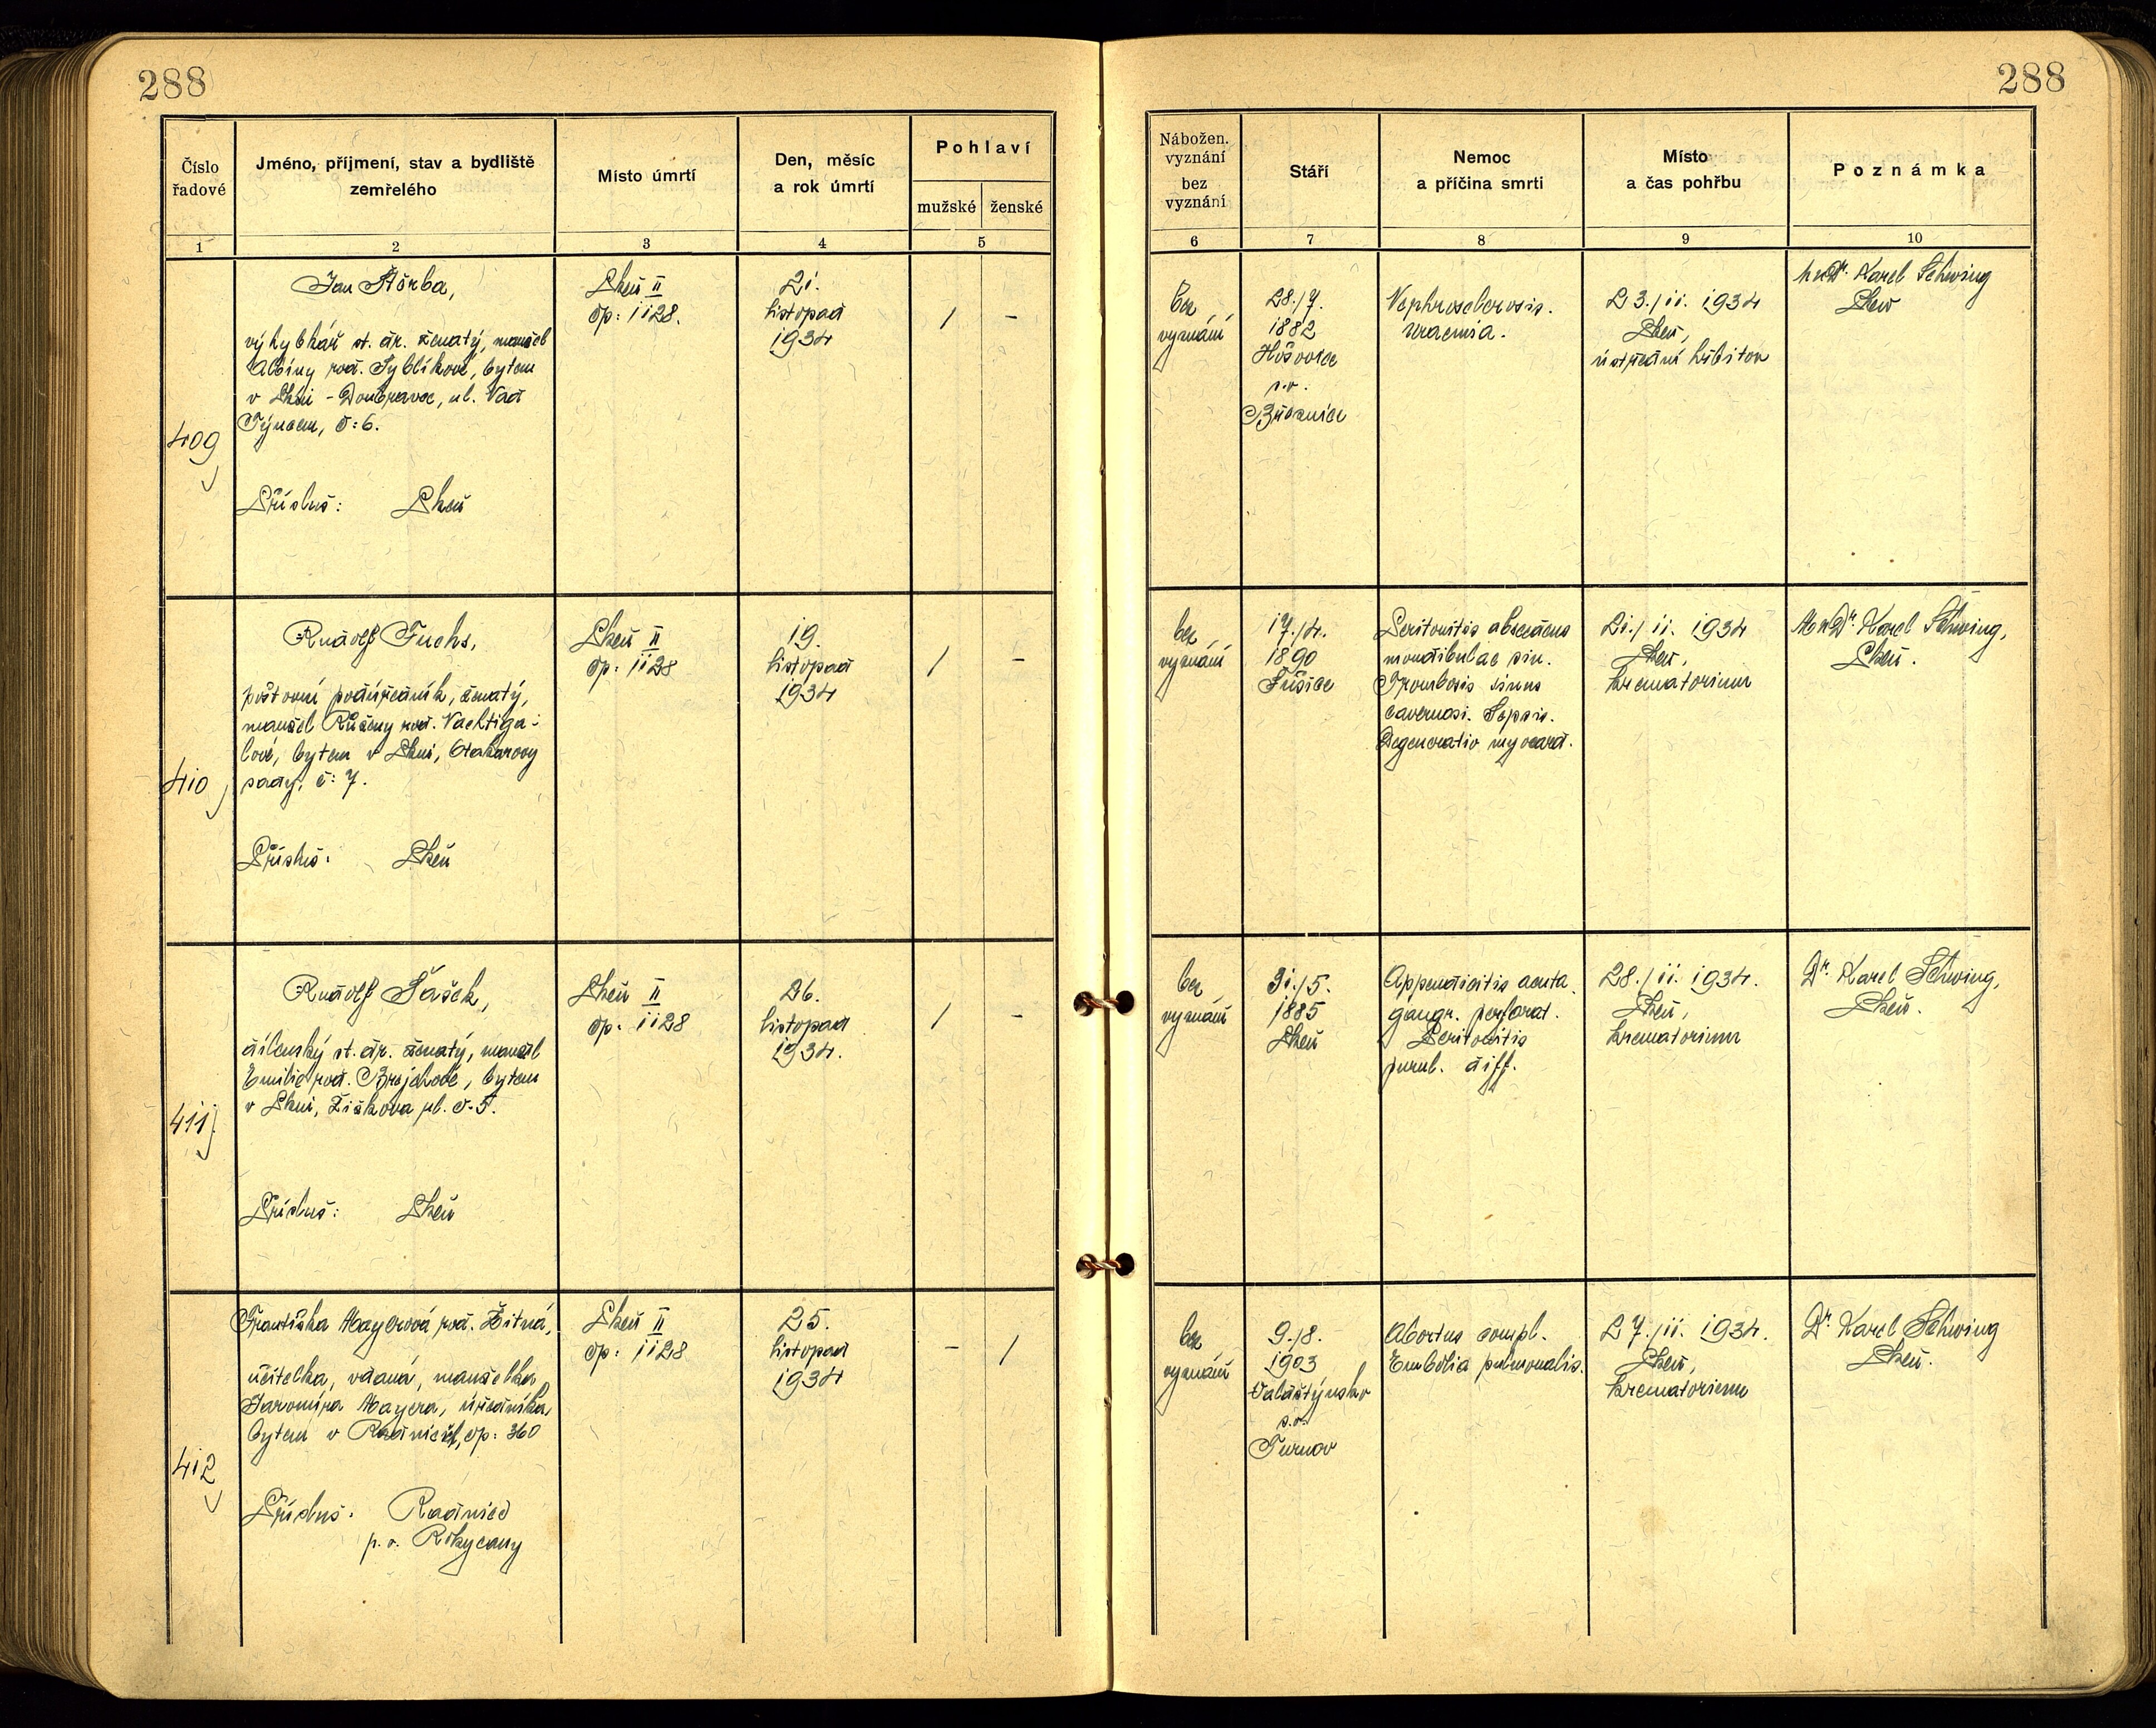 288
288
Číslo
řadové
Jméno, příjmení, stav a bydliště
zemřelého
Místo úmrtí
Den, měsíc
a rok úmrtí
Pohlaví
mužské
ženské
1
2
3
4
5
Nábožen.
vyznání
bez
vyznání
Stáří
Nemoc
a příčina smrti
Místo
a čas pohřbu
Poznámka
6
7
8
9
10
409
Jan
výhybkář st. dr. ženatý, manžel
Albíny roz. bytem
v Plzni - Doubravce, ul. Nad
Týncem, č: 6.
Přísluš: Plzeň
Plzeň II
čp: 1128.
21.
listopad
1934
/
-
bez
vyznání
28./7.
1882
p.o.
Březnice
Nephrosclerosis.
uraemia.
23./11. 1934
Plzeň,
ústřední hřbitov
MUDr. Karel Schwing
Plzeň
410
Rudolf Fuchs,
poštovní podúředník, ženatý,
manžel Růženy roz. Nachtiga-
lové, bytem v Plzni, Otakarovy
sady, č: 7.
Přísluš: Plzeň
Plzeň II
čp: 1128
19.
listopad
1934
/
-
bez
vyznání
17./4.
1890
Sušice
abscedens
mandibulae sin.
Trombosis sinus
cavernosi. Sepsis.
Degeneratio myocard.
21./11. 1934
Plzeň,
krematorium
MUDr. Karel Schwing,
Plzeň.
411
Rudolf Šašek,
dílenský st. dr. ženatý, manžel
Emilie roz. Brojchové, bytem
v Plzni, Žižkova ul. č. 5.
Přísluš: Plzeň
Plzeň II
čp: 1128
26.
listopad
1934.
/
-
bez
vyznání
31./5.
1885
Plzeň
Appendicitis acuta.
gangr. perforat.
Peritonitis
purul. diff.
28./11. 1934.
Plzeň,
krematorium
Dr. Karel Schwing,
Plzeň.
412
Františka Mayerová roz. Žitná,
učitelka, vdaná, manželka
Jaromíra Mayera, úředníka,
bytem v čp: 360
Přísluš: Radnice
p. o. Rokycany
Plzeň II
čp: 1128
25.
listopad
1934
-
/
bez
vyznání
9./8.
1903
p.o.
Turnov
Abortus compl.
Embolia pulmonalis.
27./11. 1934.
Plzeň,
krematorium
Dr. Karel Schwing
Plzeň.